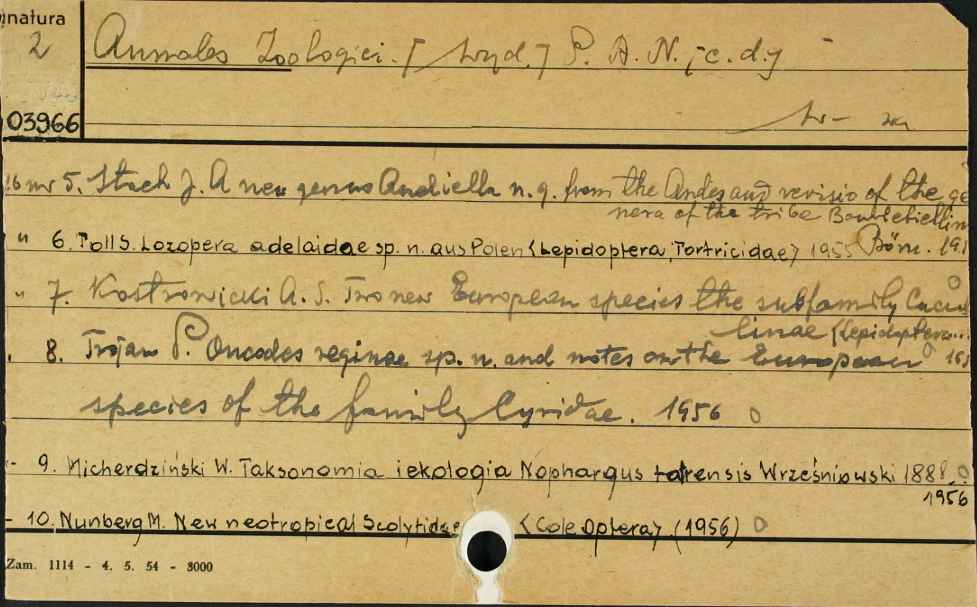 natura
2
03966
Annales Zoologici. [wyd.] P. A. N. /c. d./
w-
16 nr 5. Stach J. A new genus Andiella n. g. from the Andes and revisio of the ge
nera of the tribe Bourletiellini
Börn. 19
" 6. Toll S. Lozopera adelaidae sp. n. aus Polen <Lepidoptera, Tortricidae> 1955
" 7. Kostrowicki A. S. Two new European species the subfamily Cucul
linae <Lepidoptera..
8. Trojan P. Oncodes reginae sp. n. and notes on the European
species of the family Cyridae. 1956 o
- 9. Micherdziński W. Taksonomia i ekologia Niphargus tatrensis Wrześniowski 1888
1956
- 10. Nunberg M. New neotropical Scolytidae <Coleoptera> (1956) o
Zam. 1114 - 4. 5. 54 - 3000